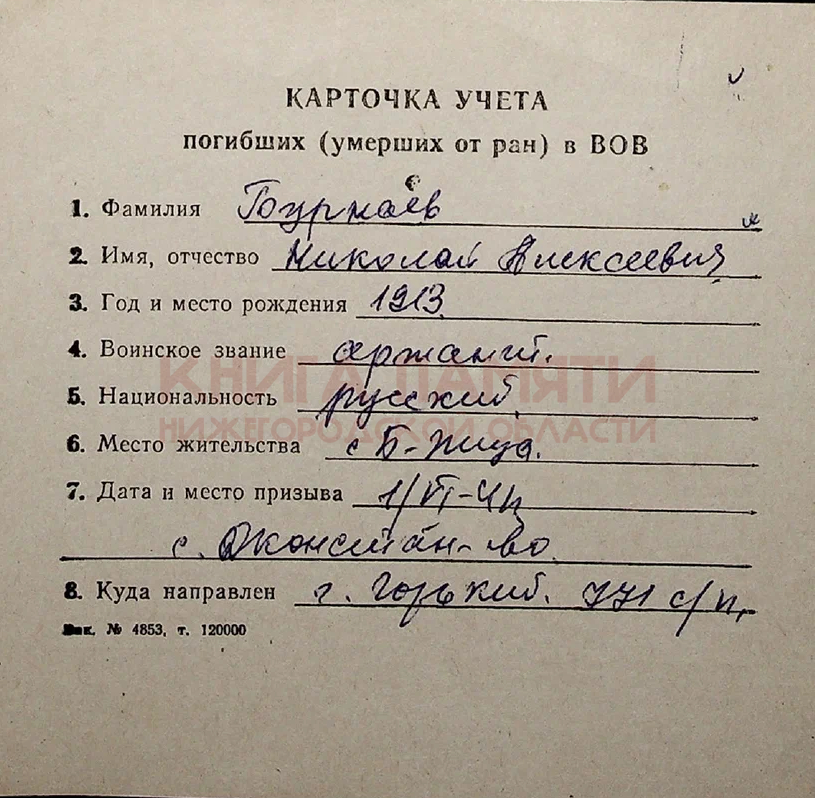 КАРТОЧКА УЧЕТА
погибших (умерших от ран) в ВОВ
1. Фамилия
2. Имя, отчество Николай Алексеевич
3. Год и место рождения 1913
4. Воинское звание
КНИГА ПАМЯТИ
5. Национальность русский
НИЖЕГОРОДСКОЙ ОБЛАСТИ
6. Место жительства с Б-
7. Дата и место призыва 1/VI-41
с.
8. Куда направлен г. Горький. 771 с/п,
Зак. № 4853, т. 120000